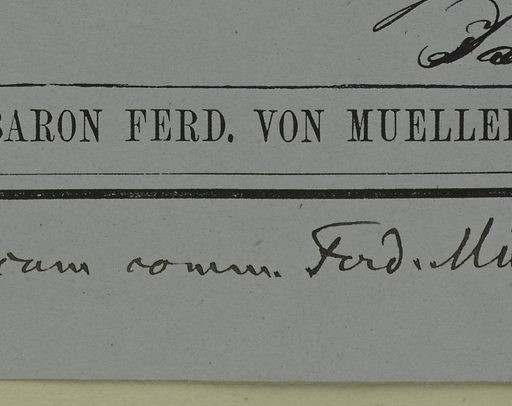 BARON FERD. VON MUELLER
comm. Ferd. Mü